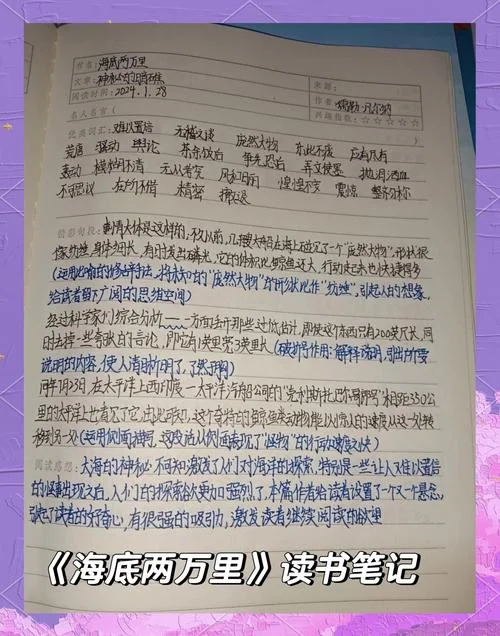 书名：海底两万里
文章：神秘的暗礁
来源：
阅读时间：2024.1.28
作者：儒勒·凡尔纳
名人名言（
兴趣指数：☆☆☆☆☆
优美词汇：难以置信 无稽之谈 庞然大物 东北不废 应有尽有
荒唐 轰动 舆论 茶余饭后 争先恐后 弄文使墨 抛泪洒血
轰动 模糊不清 无从考究 风和日丽 惶惶不安 震惊 整齐匀称
不可思议 在所不惜 精密
精彩句段：事情大体是这样的：不久以前，几艘大船在海上碰见了一个“庞然大物”，形状很
像纺锤，身体细长，有时发出磷光，它的体积比鲸鱼还大，行动起来也快速得多
（运用比喻的修辞手法，将未知的“庞然大物”的形状比作“纺锤”，引起人的想象，
给读者留下广阔的思维空间）
经过科学家们综合分析——一方面丢开那些过低估计，即使这个东西只有200英尺长，同
时去掉一些夸张的言论，即它有1英里宽3英里长（破折号作用：解释说明，引出所要
说明的内容，使人清晰明了，了然于胸）
同年7月23日，在太平洋上西印度—太平洋汽船公司的“克利斯托巴尔哥郎号”相距350公
里的太平洋上也看见了它，由此可知，这个奇特的鲸鱼类动物能以惊人的速度从这一处转
移到另一处（运用侧面描写，这段话从侧面表现了“怪物”的行动速度之快）
阅读感想：大海的神秘不可知激发了人们对海洋的探索，特别是一些让人难以置信
的怪事出现之后，人们的探索欲更加强烈了，本篇作者给读者设置了一个又一个悬念，
引起了读者的好奇心，有很强的吸引力，激发读者继续阅读的欲望
《海底两万里》读书笔记